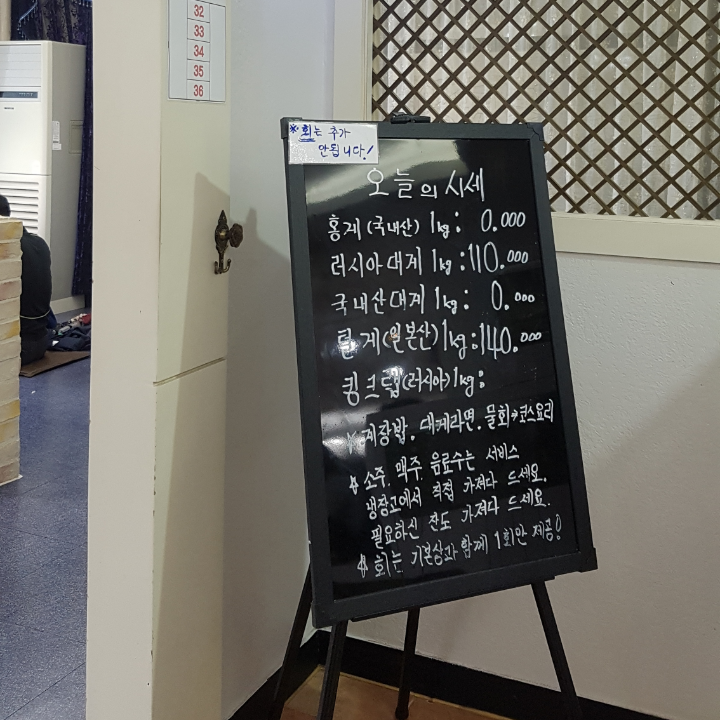 32
33
34
35
36
※회는 추가
안됩니다!
오늘의 시세
홍게(국내산) 1kg: 0.000
러시아대게 1kg: 110.000
국내산대게 1kg: 0.000
털게(일본산) 1kg: 140.000
킹크랩(러시아) 1kg:
게장밥. 대게라면. 물회→코스요리
소주. 맥주. 음료수는 서비스
냉장고에서 직접 가져다 드세요.
필요하신 잔도 가져다 드세요.
회는 기본상과 함께 1회만 제공!